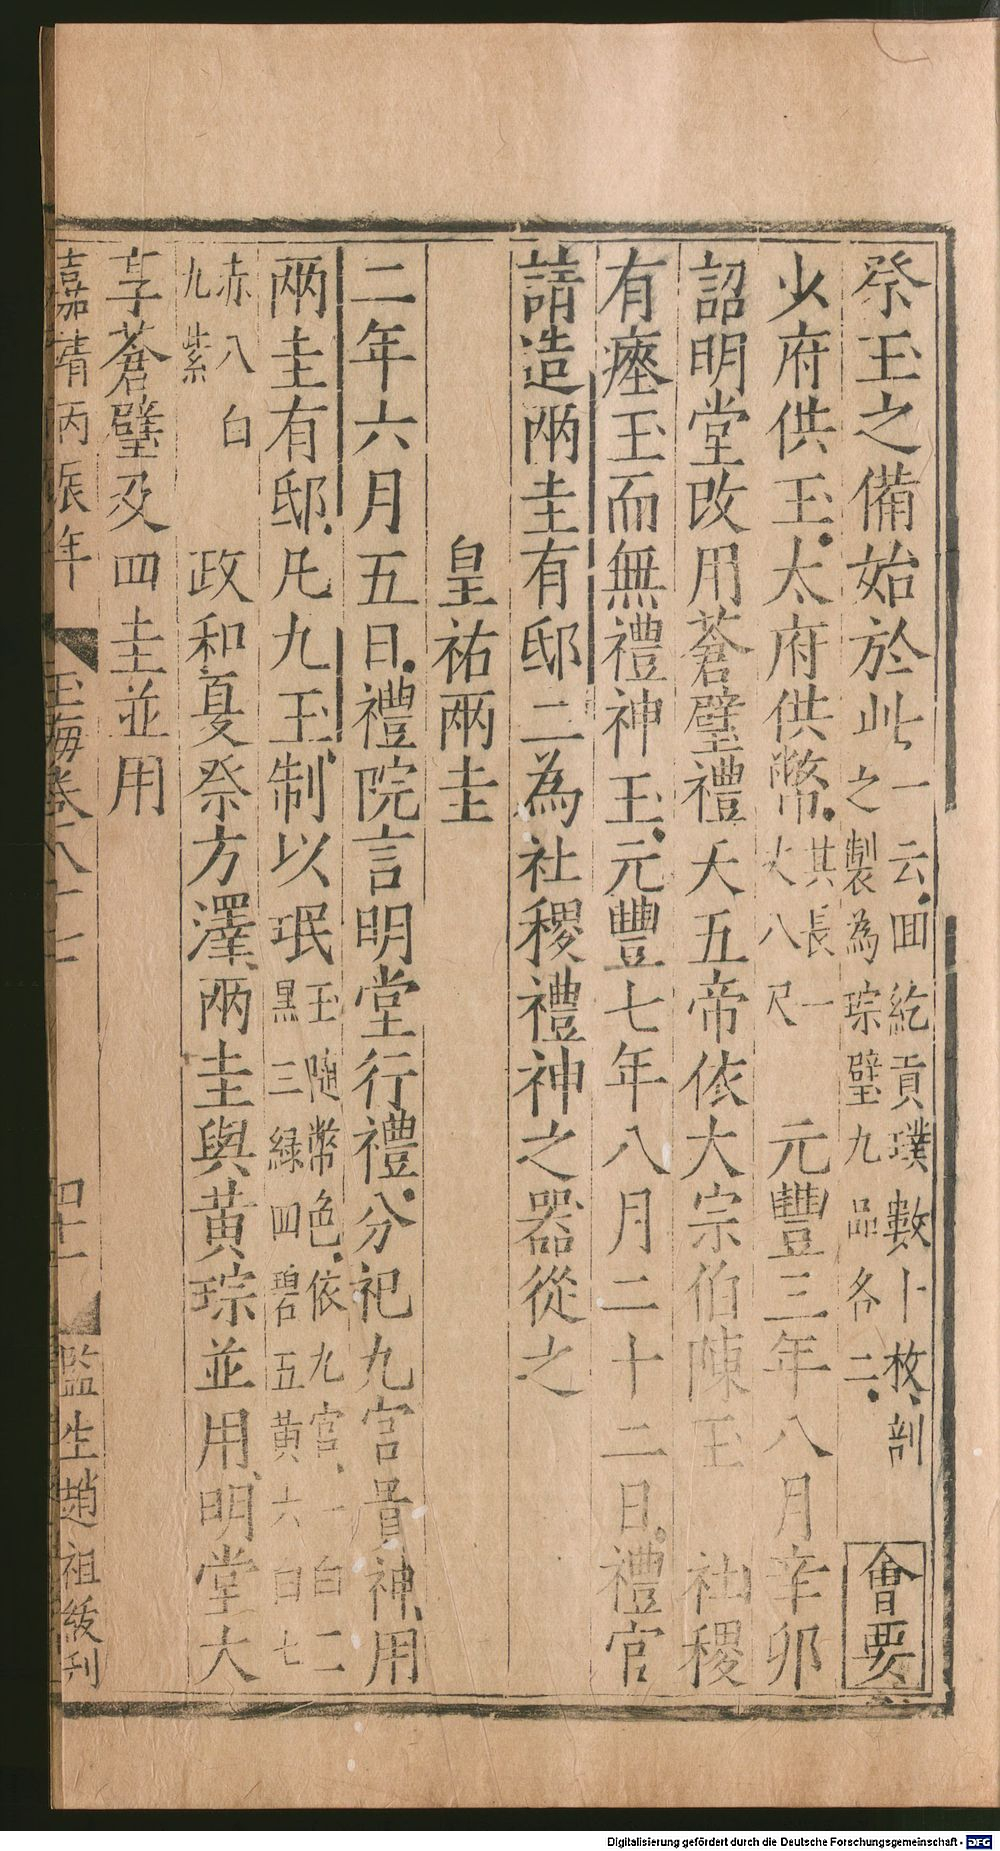 祭玉之備始於此一云囬紇貢璞數十枚剖之製為琮璧九品各二會要
少府供玉太府供幣其長一丈八尺元豐三年八月辛卯
詔明堂改用蒼璧禮天五帝依大宗伯陳玉社稷
有瘞玉而無禮神玉元豐七年八月二十二日禮官
請造兩圭有邸二為社稷禮神之器從之
皇祐兩圭
二年六月五日禮院言明堂行禮分祀九宮貴神用
兩圭有邸凡九玉制以珉玉隨幣色依九宮一白二黒三緑四碧五黄六白七
赤八白九紫政和夏祭方澤兩圭與黄琮並用明堂大
享蒼璧及四圭並用
嘉靖丙辰年 玉海卷八十七 四十一 監生趙祖級刊
Digitalisierung gefördert durch die Deutsche Forschungsgemeinschaft - DFG